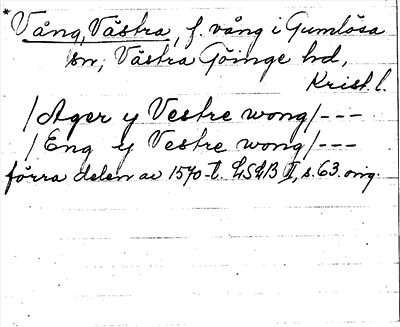 *Vång, Västra, f. vång i Gumlösa
sn, Västra Göinge hd,
Krist. l.
/Ager y Vestre wong/---
/Eng y Vestre wong/---
förra delen av 1570-t. LSLB I, s. 63. orig.